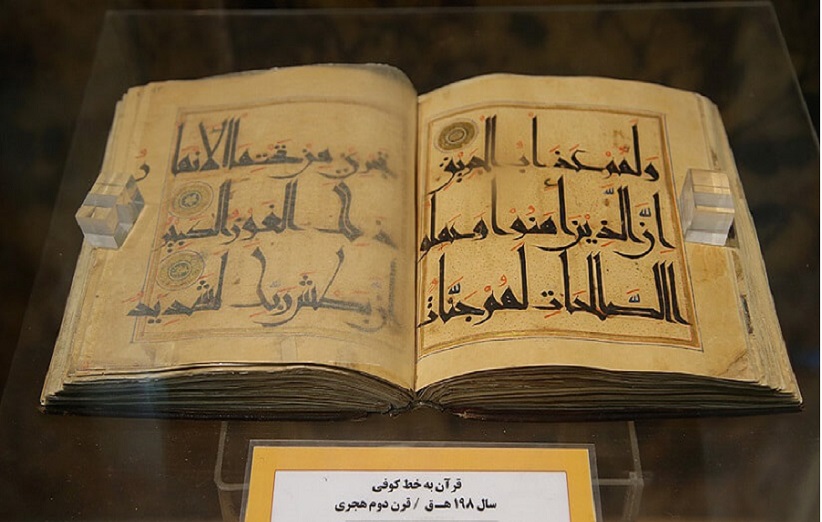 ولهم عذاب الحريق
ان الذين امنوا وعملو
ا الصالحات لهم جنات
تجري من تحتها الانها ر
ذلك الفوز الكبير
ان بطش ربك لشديد
قرآن به خط کوفی
سال ۱۹۸ هـ-ق / قرن دوم هجری